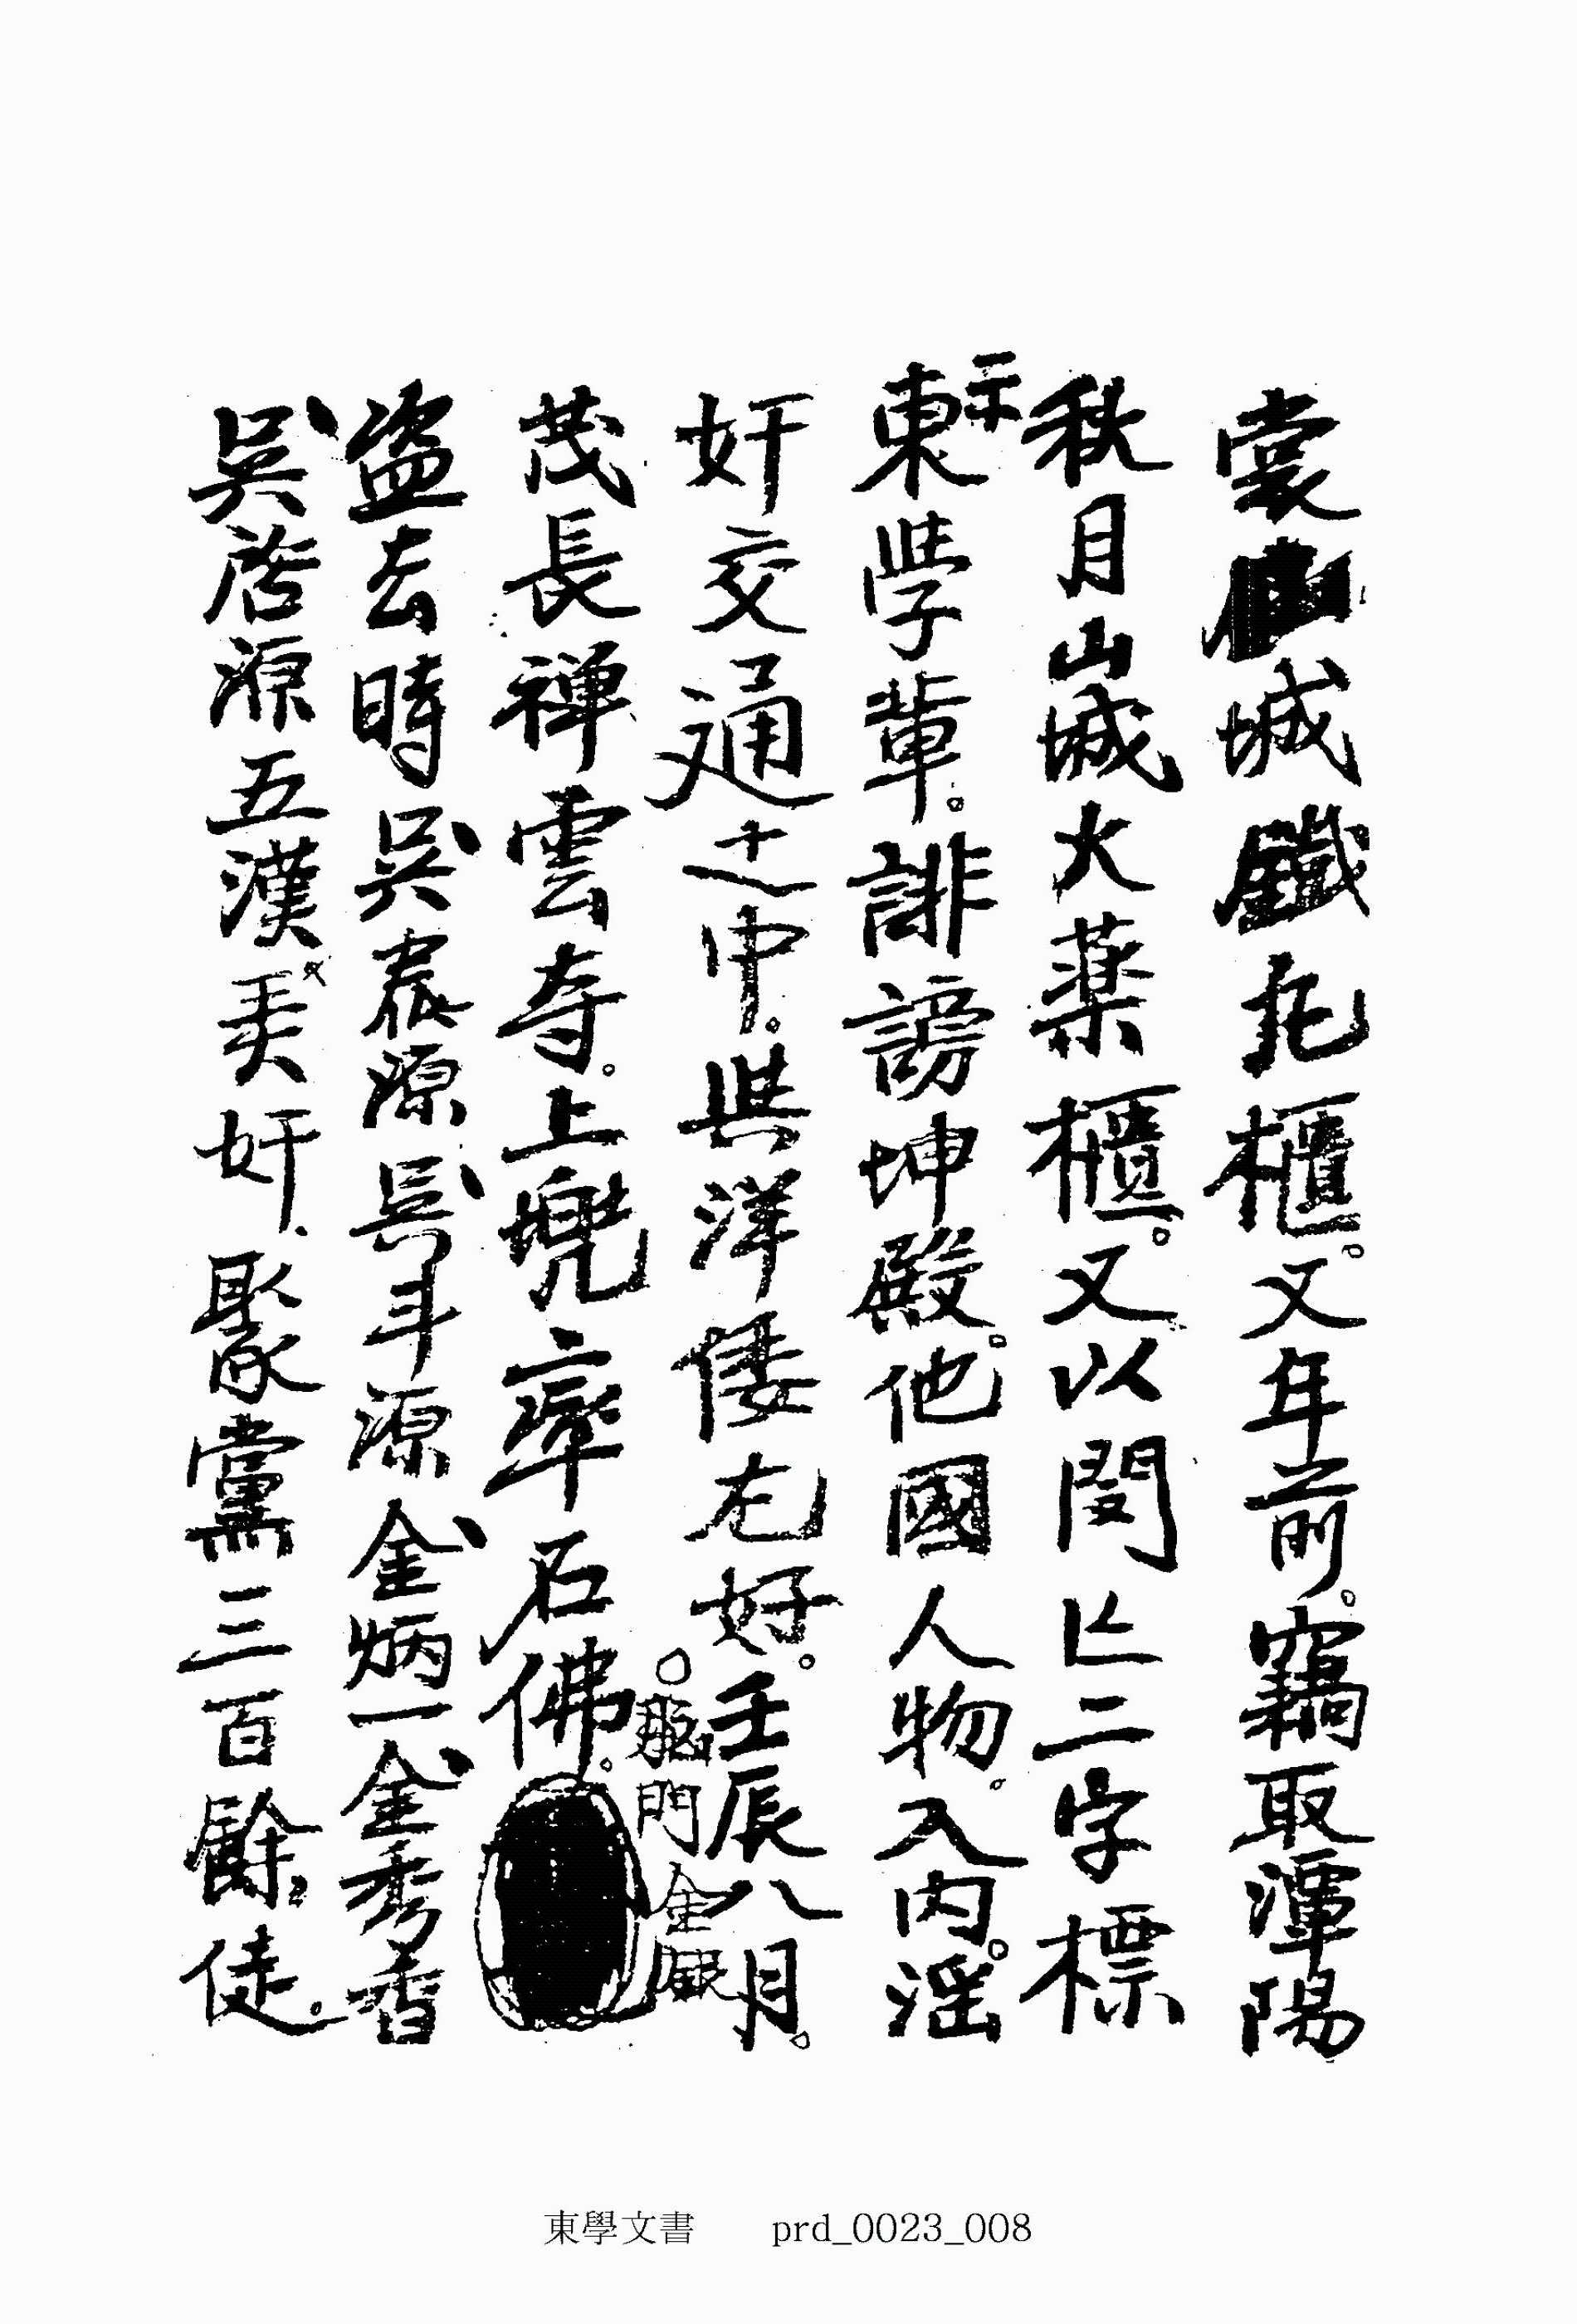 裳■城鐵丸櫃。又年前。竊取潭陽
秋月山城火藥櫃。又以閔亡二字標
示東学輩。誹謗坤殿。他國人物。入内。淫
奸交通之中。與洋倭尤好。壬辰八月。
茂長禅雲寺。上兜率石佛。
腦門金
盜去時吳泰源吳斗源金炳一金秀香
吳啓源五漢 奸、聚黨三百餘徒。
東學文書 prd_0023_008